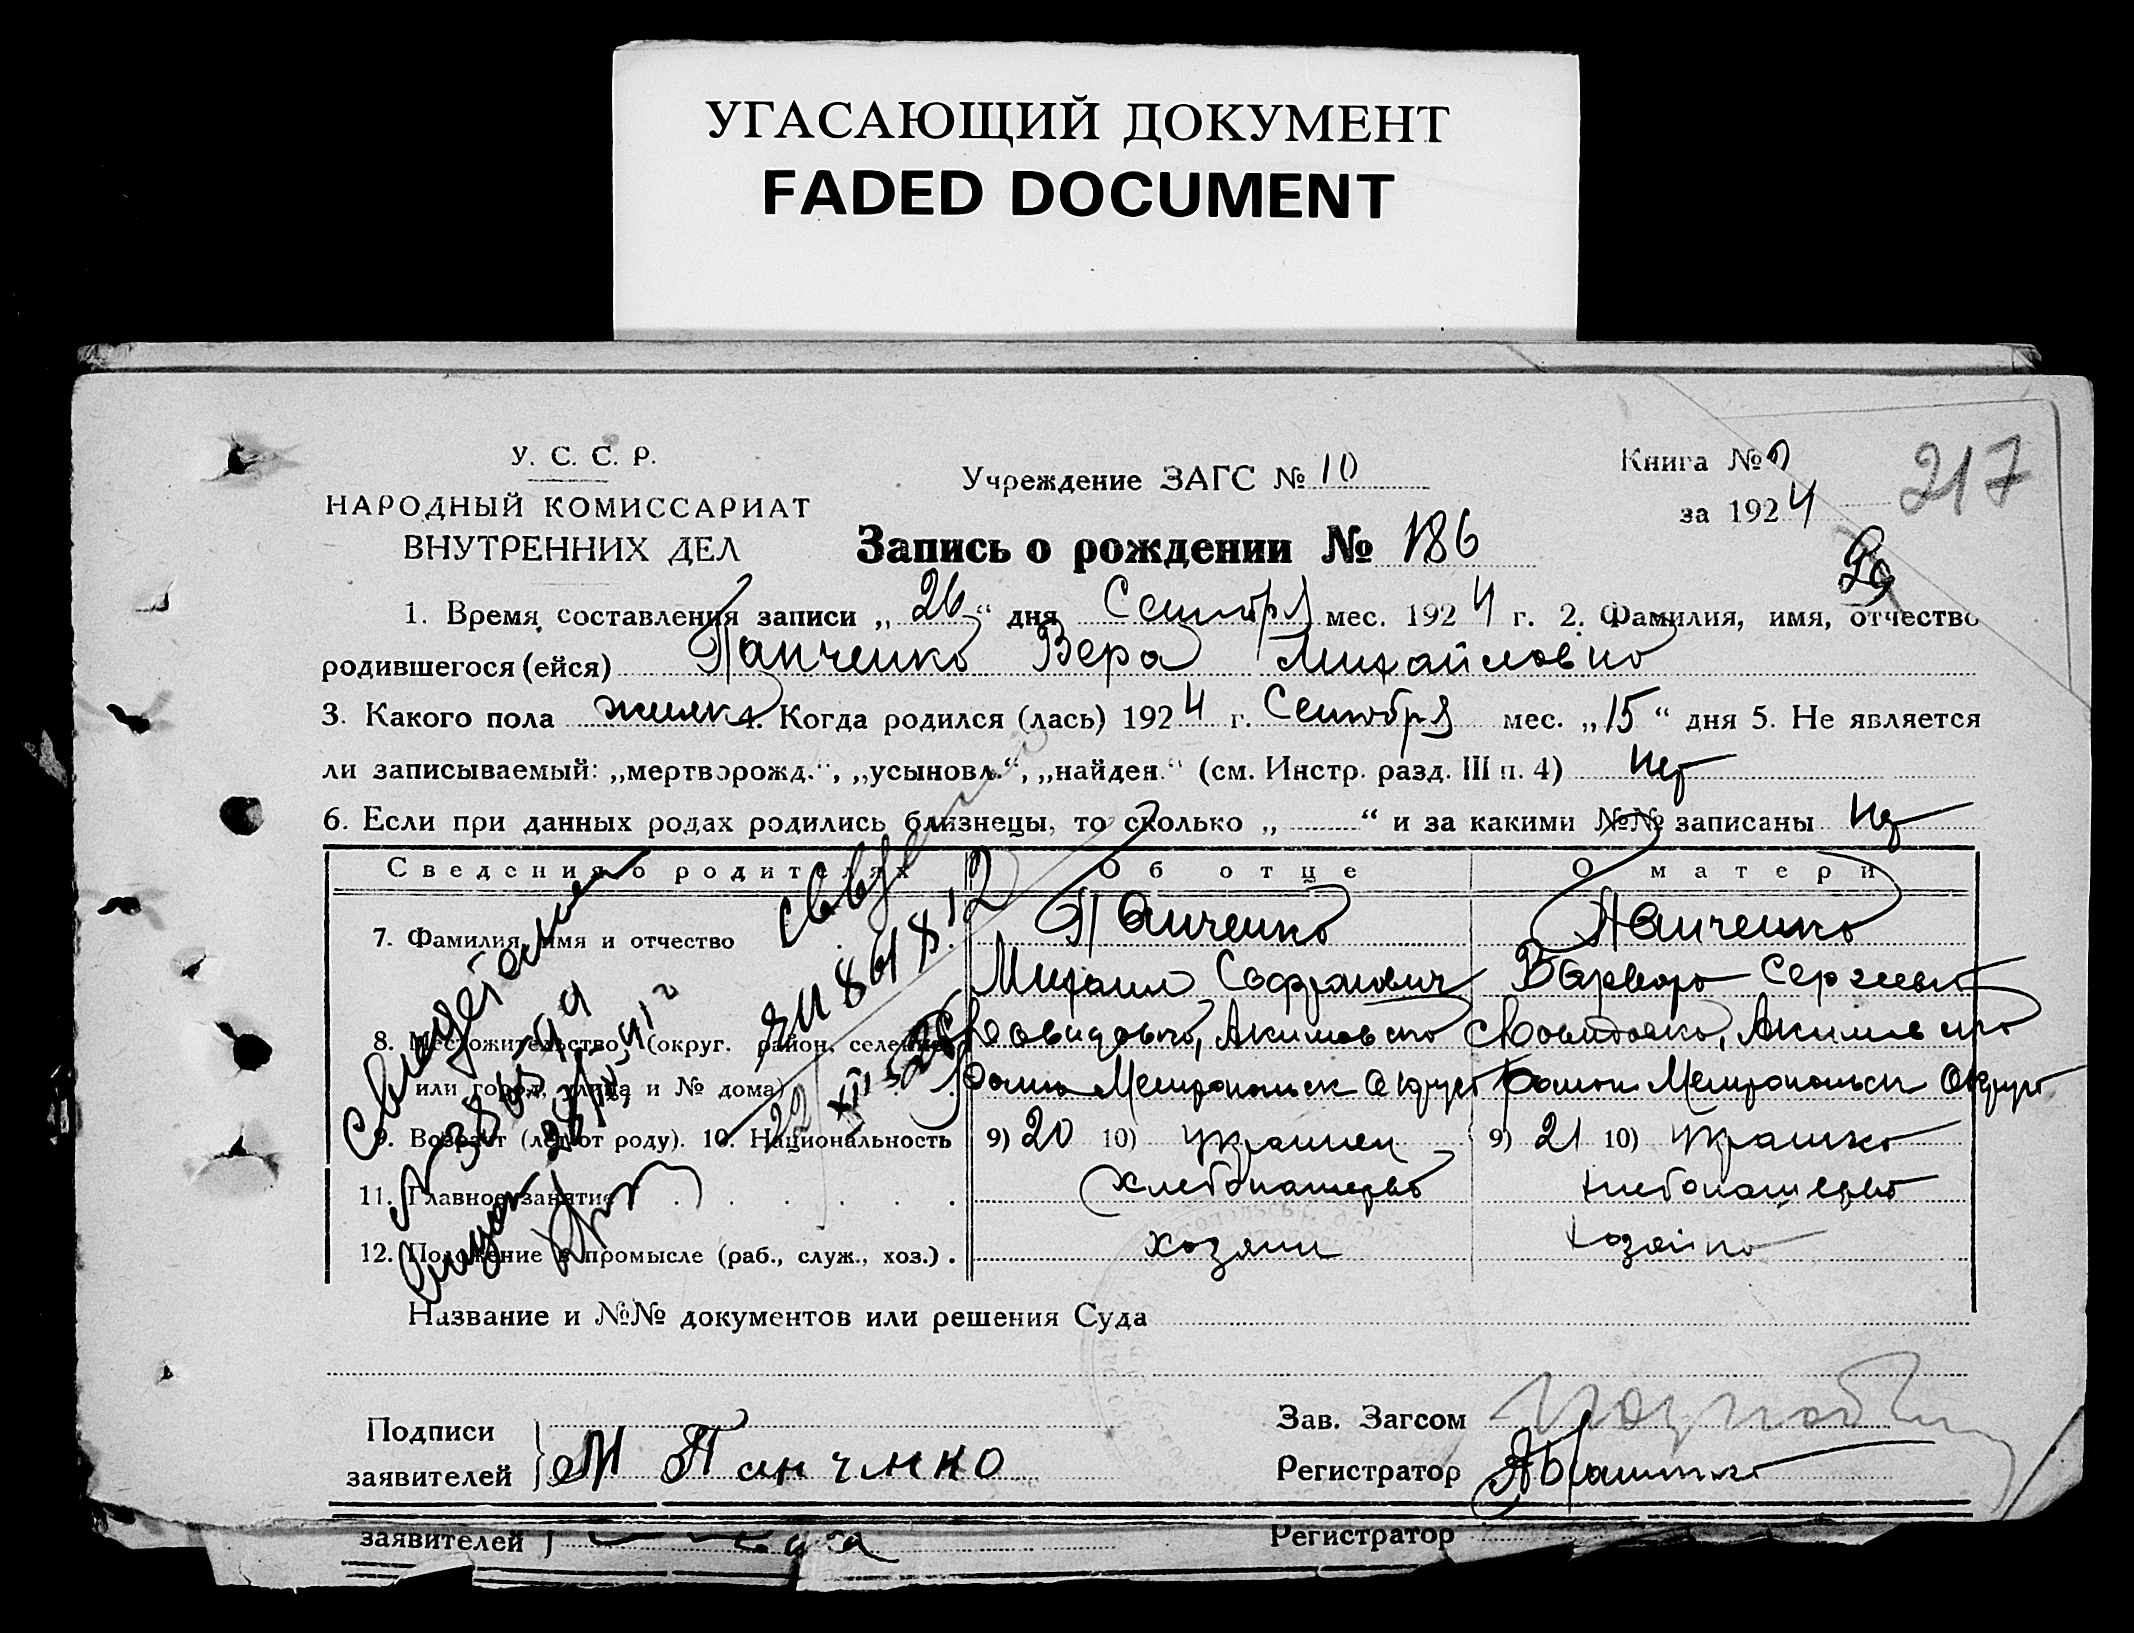 УГАСАЮЩИЙ ДОКУМЕНТ
FADED DOCUMENT
У. С. С. Р.
НАРОДНЫЙ КОМИССАРИАТ
ВНУТРЕННИХ ДЕЛ
Учреждение ЗАГС № 10
Книга №
за 1924
217
Запись о рождении № 186
1. Время составления записи „ 26 “ дня Сентября мес. 1924 г. 2. Фамилия, имя, отчество
родившегося (ейся) Панченко Вера Михайловна
3. Какого пола женск 4. Когда родился (лась) 1924 г. Сентября мес. „ 15 “ дня 5. Не является
ли записываемый: „мертворожд.“, „усыновл.“, „найден.“ (см. Инстр. разд. III п. 4) нет
6. Если при данных родах родились близнецы, то сколько „ “ и за какими №№ записаны нет
Сведения о родителях Об отце О матери
7. Фамилия, имя и отчество Панченко Панченко
Михаил Варвара Сергеевна
8. Местожительство (округ. район, селение Акимовского
или город, улица и № дома) района Мелитопольск Округа района Мелитопольск Округа
9. Возраст (лет от роду). 10. Национальность 9) 20 10) украинец 9) 21 10) украинка
11. Главное занятие хлебопашество хлебопашество
12. Положение в промысле (раб., служ., хоз.) хозяин хозяйка
Свидетельство
Название и №№ документов или решения Суда
Подписи
заявителей М Панченко
Зав. Загсом
Регистратор
заявителей
Регистратор